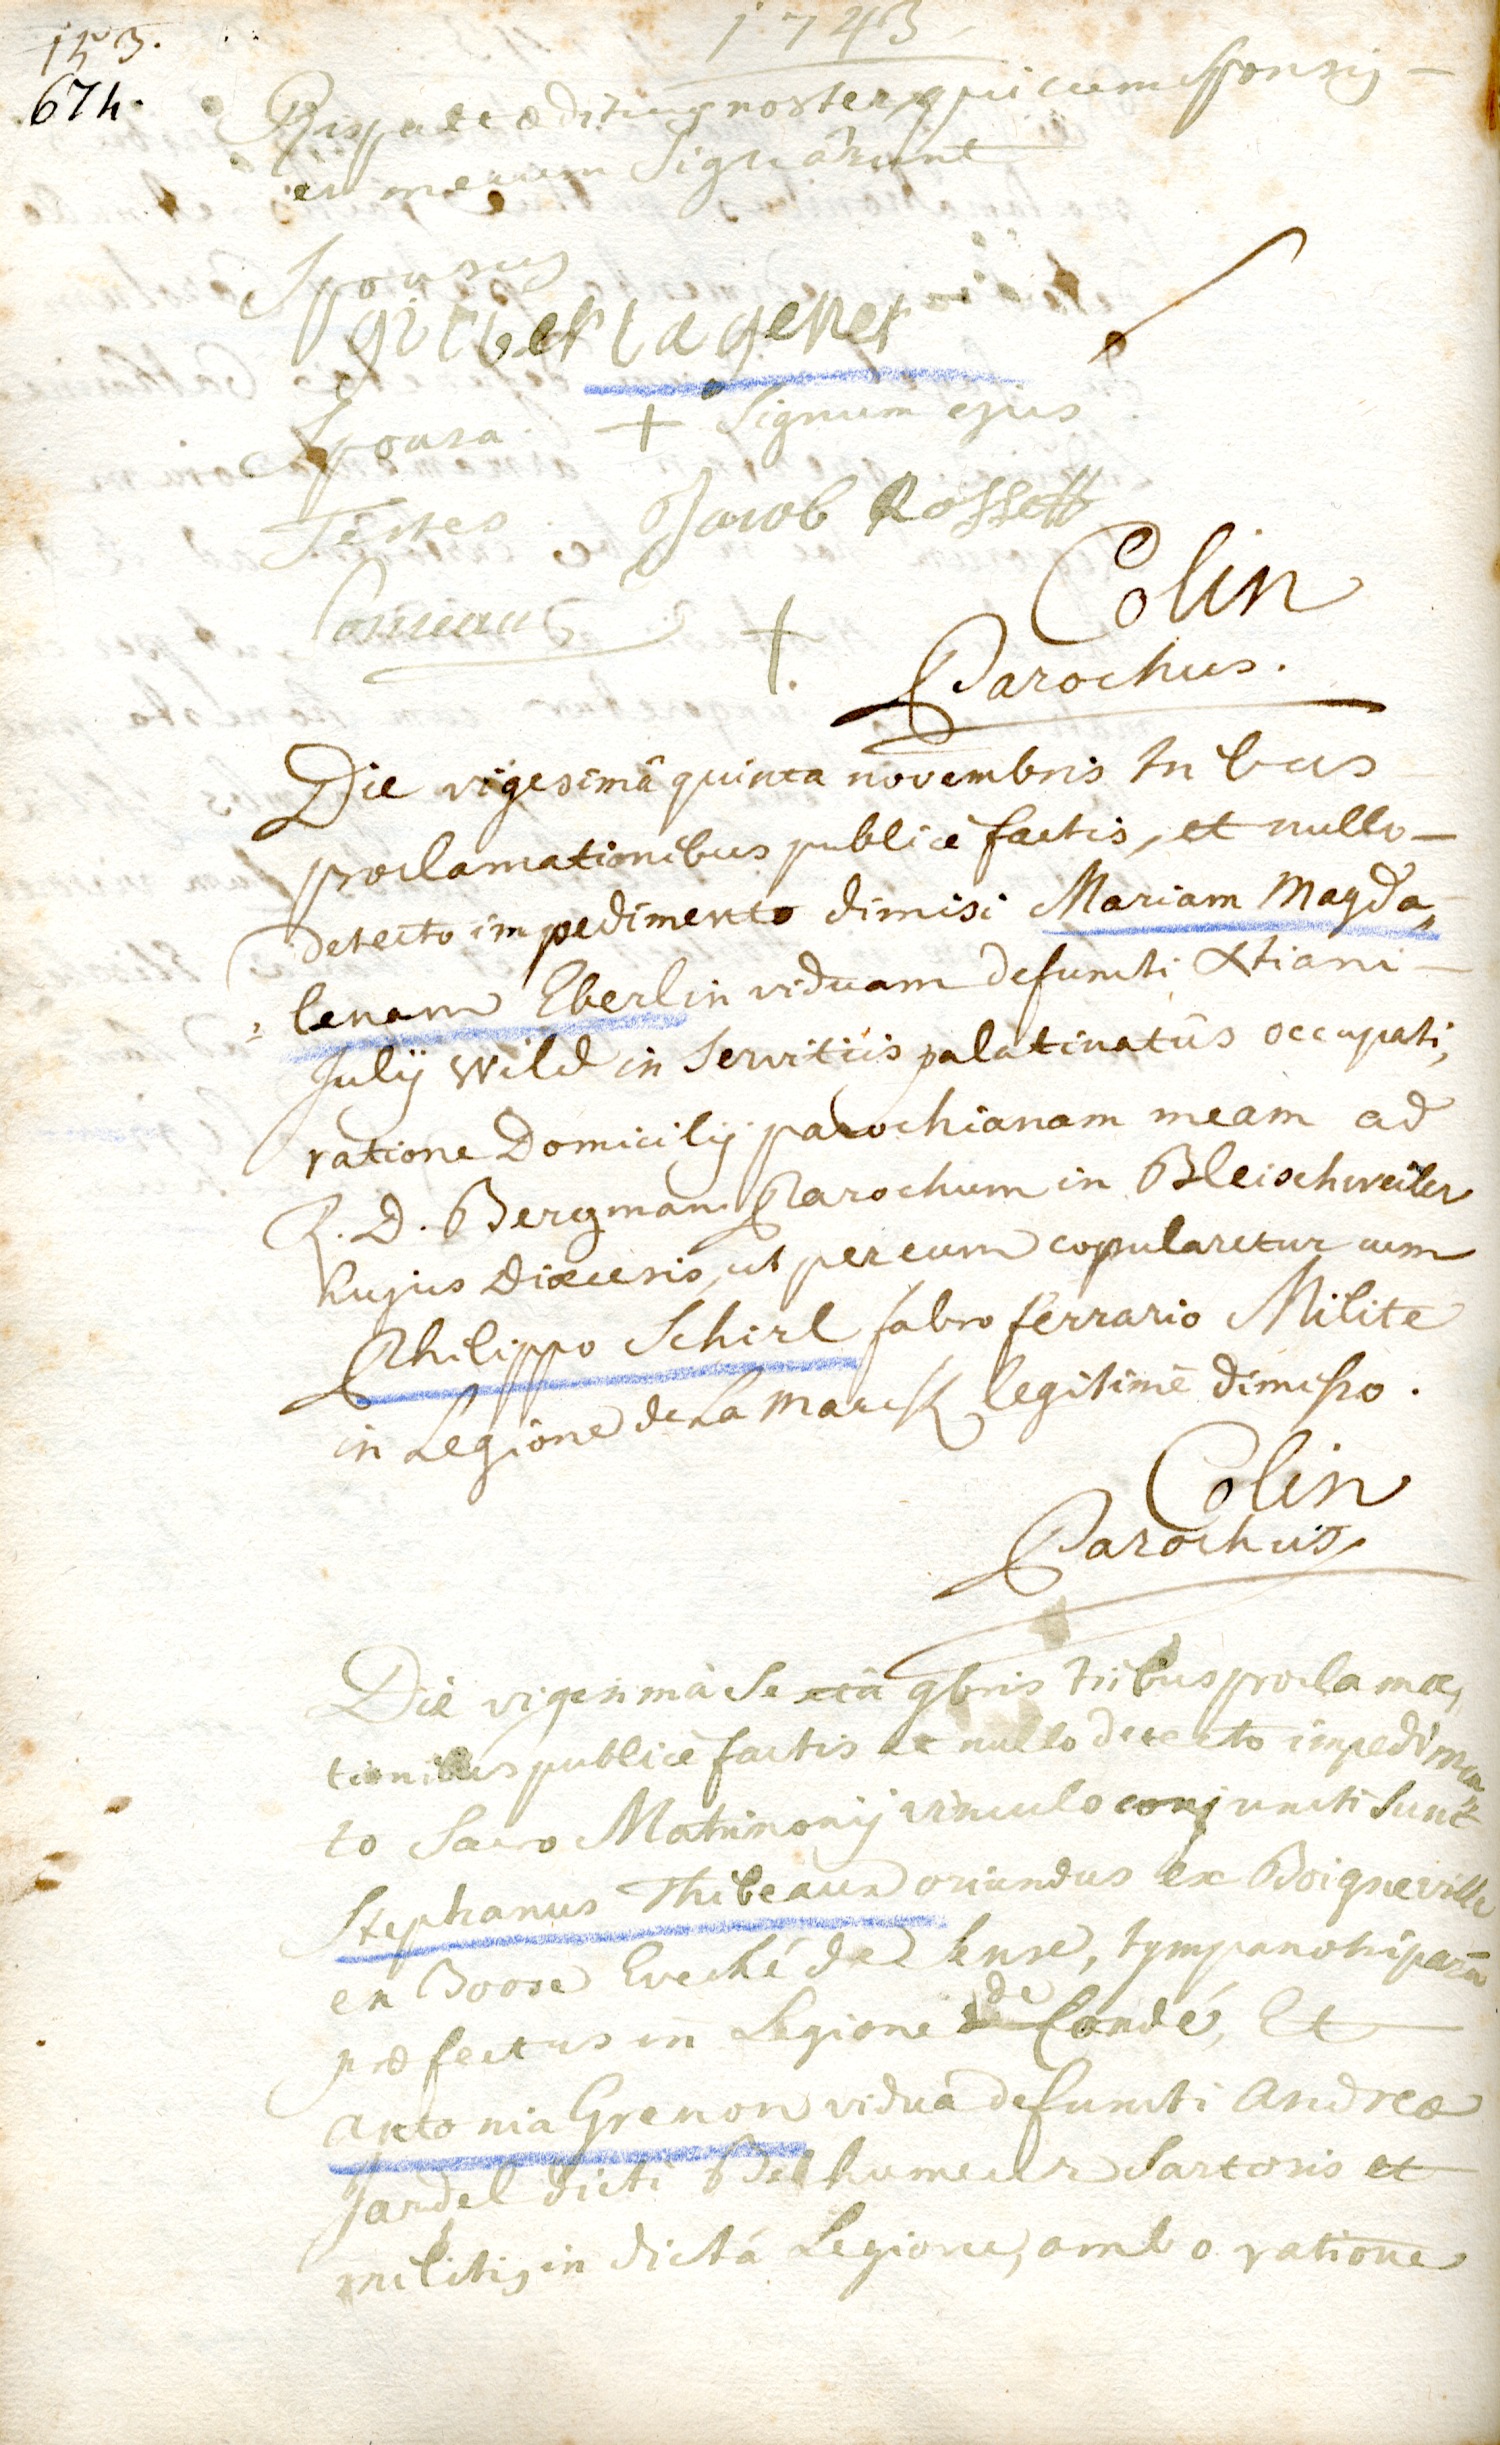 1743
153.
674.
ædituus noster, qui cum sponsis
et mecum Signârunt
Sponsus
gilber lagener
Sponsa. + Signum ejus
Testes. Jacob Rossett
+
Colin
Parochus.
Die vigesimâ quinta novembris tribus
proclamationibus publicè factis, et nullo
detecto impedimento dimisi Mariam Magda„
„lenam Eberlin viduam defuncti Xtiani
Julij Wild in servitiis palatinatûs occupati,
ratione Domicilij parochianam meam ad
R. D. Bergman Parochum in Bleischweiler
hujus Diœcesis, ut per eum copularetur cum
Philippo Schirl fabro ferrario Milite
in Legione de La Marck legitimè dimisso.
Colin
Parochus.
Die vigesimâ sextâ 9bris tribus proclama„
tionibus publicè factis et nullo detecto impedimen„
to Sacro Matrimonij vinculo conjuncti sunt
Stephanus Thibeaux oriundus ex Boigneville
en Boose Eveché de Sense, tympanotriparâ
præfectus in Legione de Condé, Et
Antonia Grenon vidua defuncti Andreæ
Jardel dicti Belhumeur Sartoris et
militis in dictâ Legione, ambo ratione